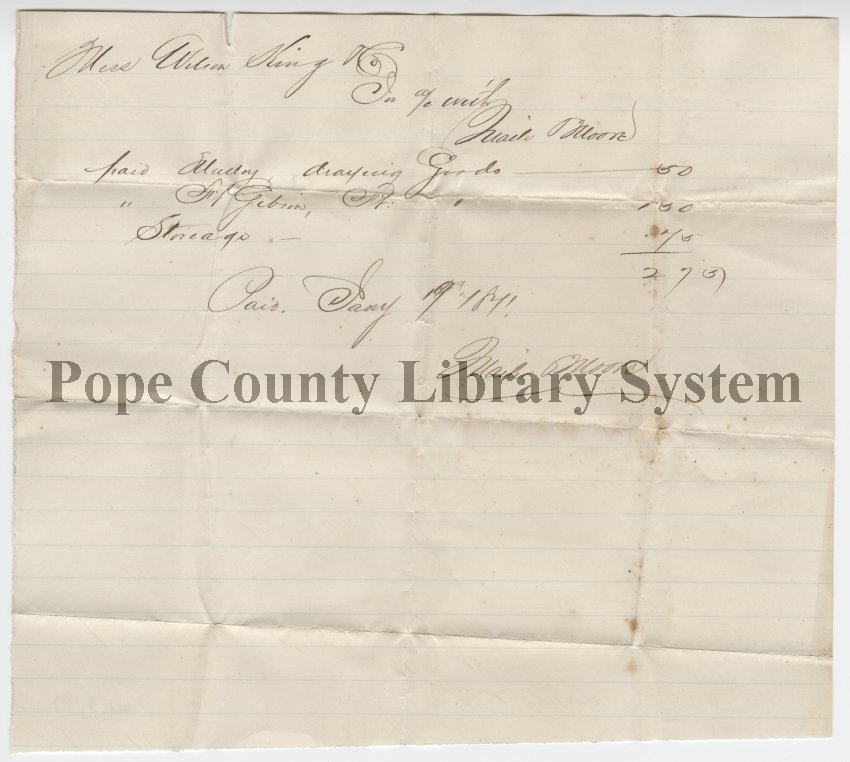 Mess Wilson King & Co
In a/c with
Moore
paid draying Goods — 50
" Ft Gibson, Ft. " 1 50
Storeage — .75
2 75
Paid. Jany 19th 1871.
Moore
Pope County Library System